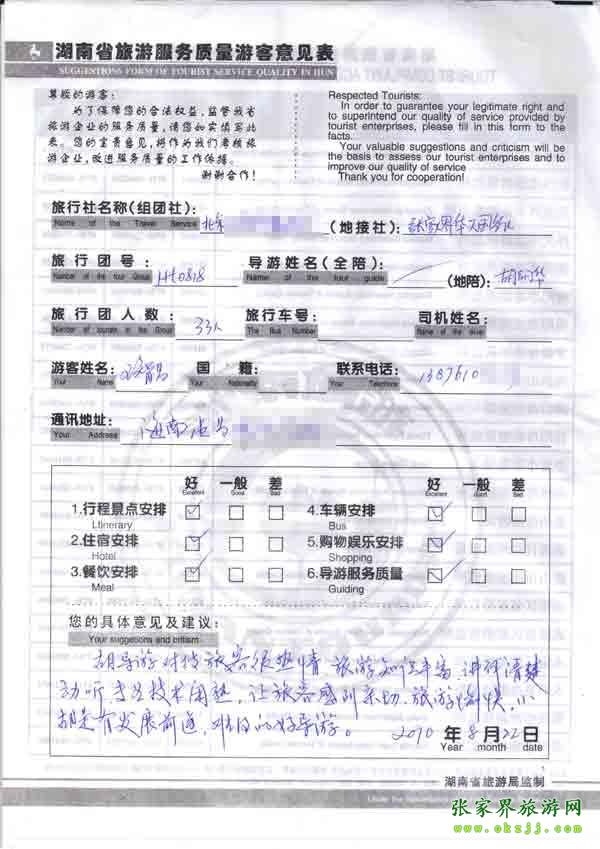 湖南省旅游服务质量游客意见表
SUGGESTIONS FORM OF TOURIST SERVICE QUALITY IN HUN
尊敬的游客：
为了保障您的合法权益，监督我省
旅游企业的服务质量，请您如实填写此
表。您的宝贵意见，将作为我们考核旅
游企业，改进服务质量的工作依据。
谢谢合作！
Respected Tourists:
In order to guarantee your legitimate right and
to superintend our quality of service provided by
tourist enterprises, please fill in this form to the
facts.
Your valuable suggestions and criticism will be
the basis to assess our tourist enterprises and to
improve our quality of service
Thank you for cooperation!
旅行社名称(组团社)： 北京 (地接社)： 张家界
Name of the Travel Service
旅行团号： Ht0818 导游姓名(全陪)： (地陪)： 胡
Number of the tour Group Name of the tour guide
旅行团人数： 33人 旅行车号： 司机姓名：
Number of tourists in the Group The Bus Number Name of the driver
游客姓名： 国籍： 联系电话： 1387610
Your Name Your Nationality Your Telephone
通讯地址： 海南
Your Address
好 一般 差 好 一般 差
Excellent Good Bad Excellent Good Bad
1.行程景点安排 4.车辆安排
Ltinerary Bus
2.住宿安排 5.购物娱乐安排
Hotel Shopping
3.餐饮安排 6.导游服务质量
Meal Guiding
您的具体意见及建议：
Your suggetions and critism
胡导游对待旅客很热情 旅游知识丰富 讲解清楚
动听 专业技术闲熟，让旅客感到亲切，旅游愉快，小
胡是有发展前途，的好导游。
2010 年 8 月 22 日
Year month date
湖南省旅游局监制
张家界旅游网
www.okzjj.com